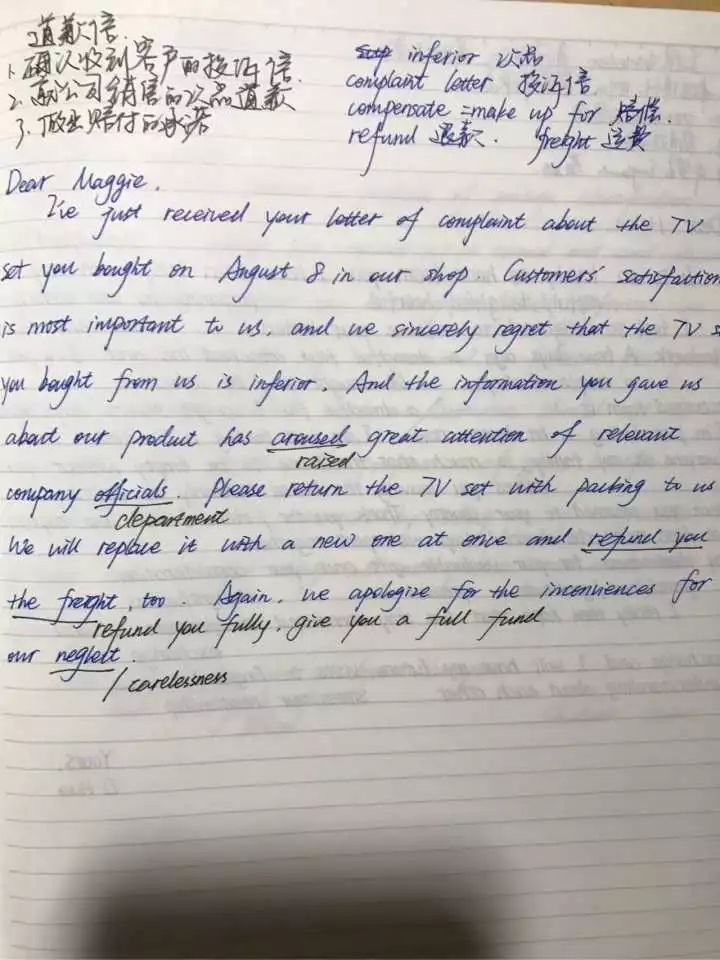 道歉信.
1. 确认收到客户的投诉信.
2. 就公司销售的次品道歉
3. 做出赔付的承诺
inferior 次品
complaint letter 投诉信
compensate =make up for 赔偿.
refund 退款. freight 运费
Dear Maggie,
I've just received your letter of complaint about the TV
set you bought on August 8 in our shop. Customers' satisfaction
is most important to us, and we sincerely regret that the TV s
you bought from us is inferior. And the information you gave us
about our product has aroused great attention of relevant
raised
company officials. Please return the TV set with packing to us
department
We will replace it with a new one at once and refund you
the freight, too. Again, we apologize for the inconviences for
refund you fully, give you a full fund
our neglect.
/ carelessness